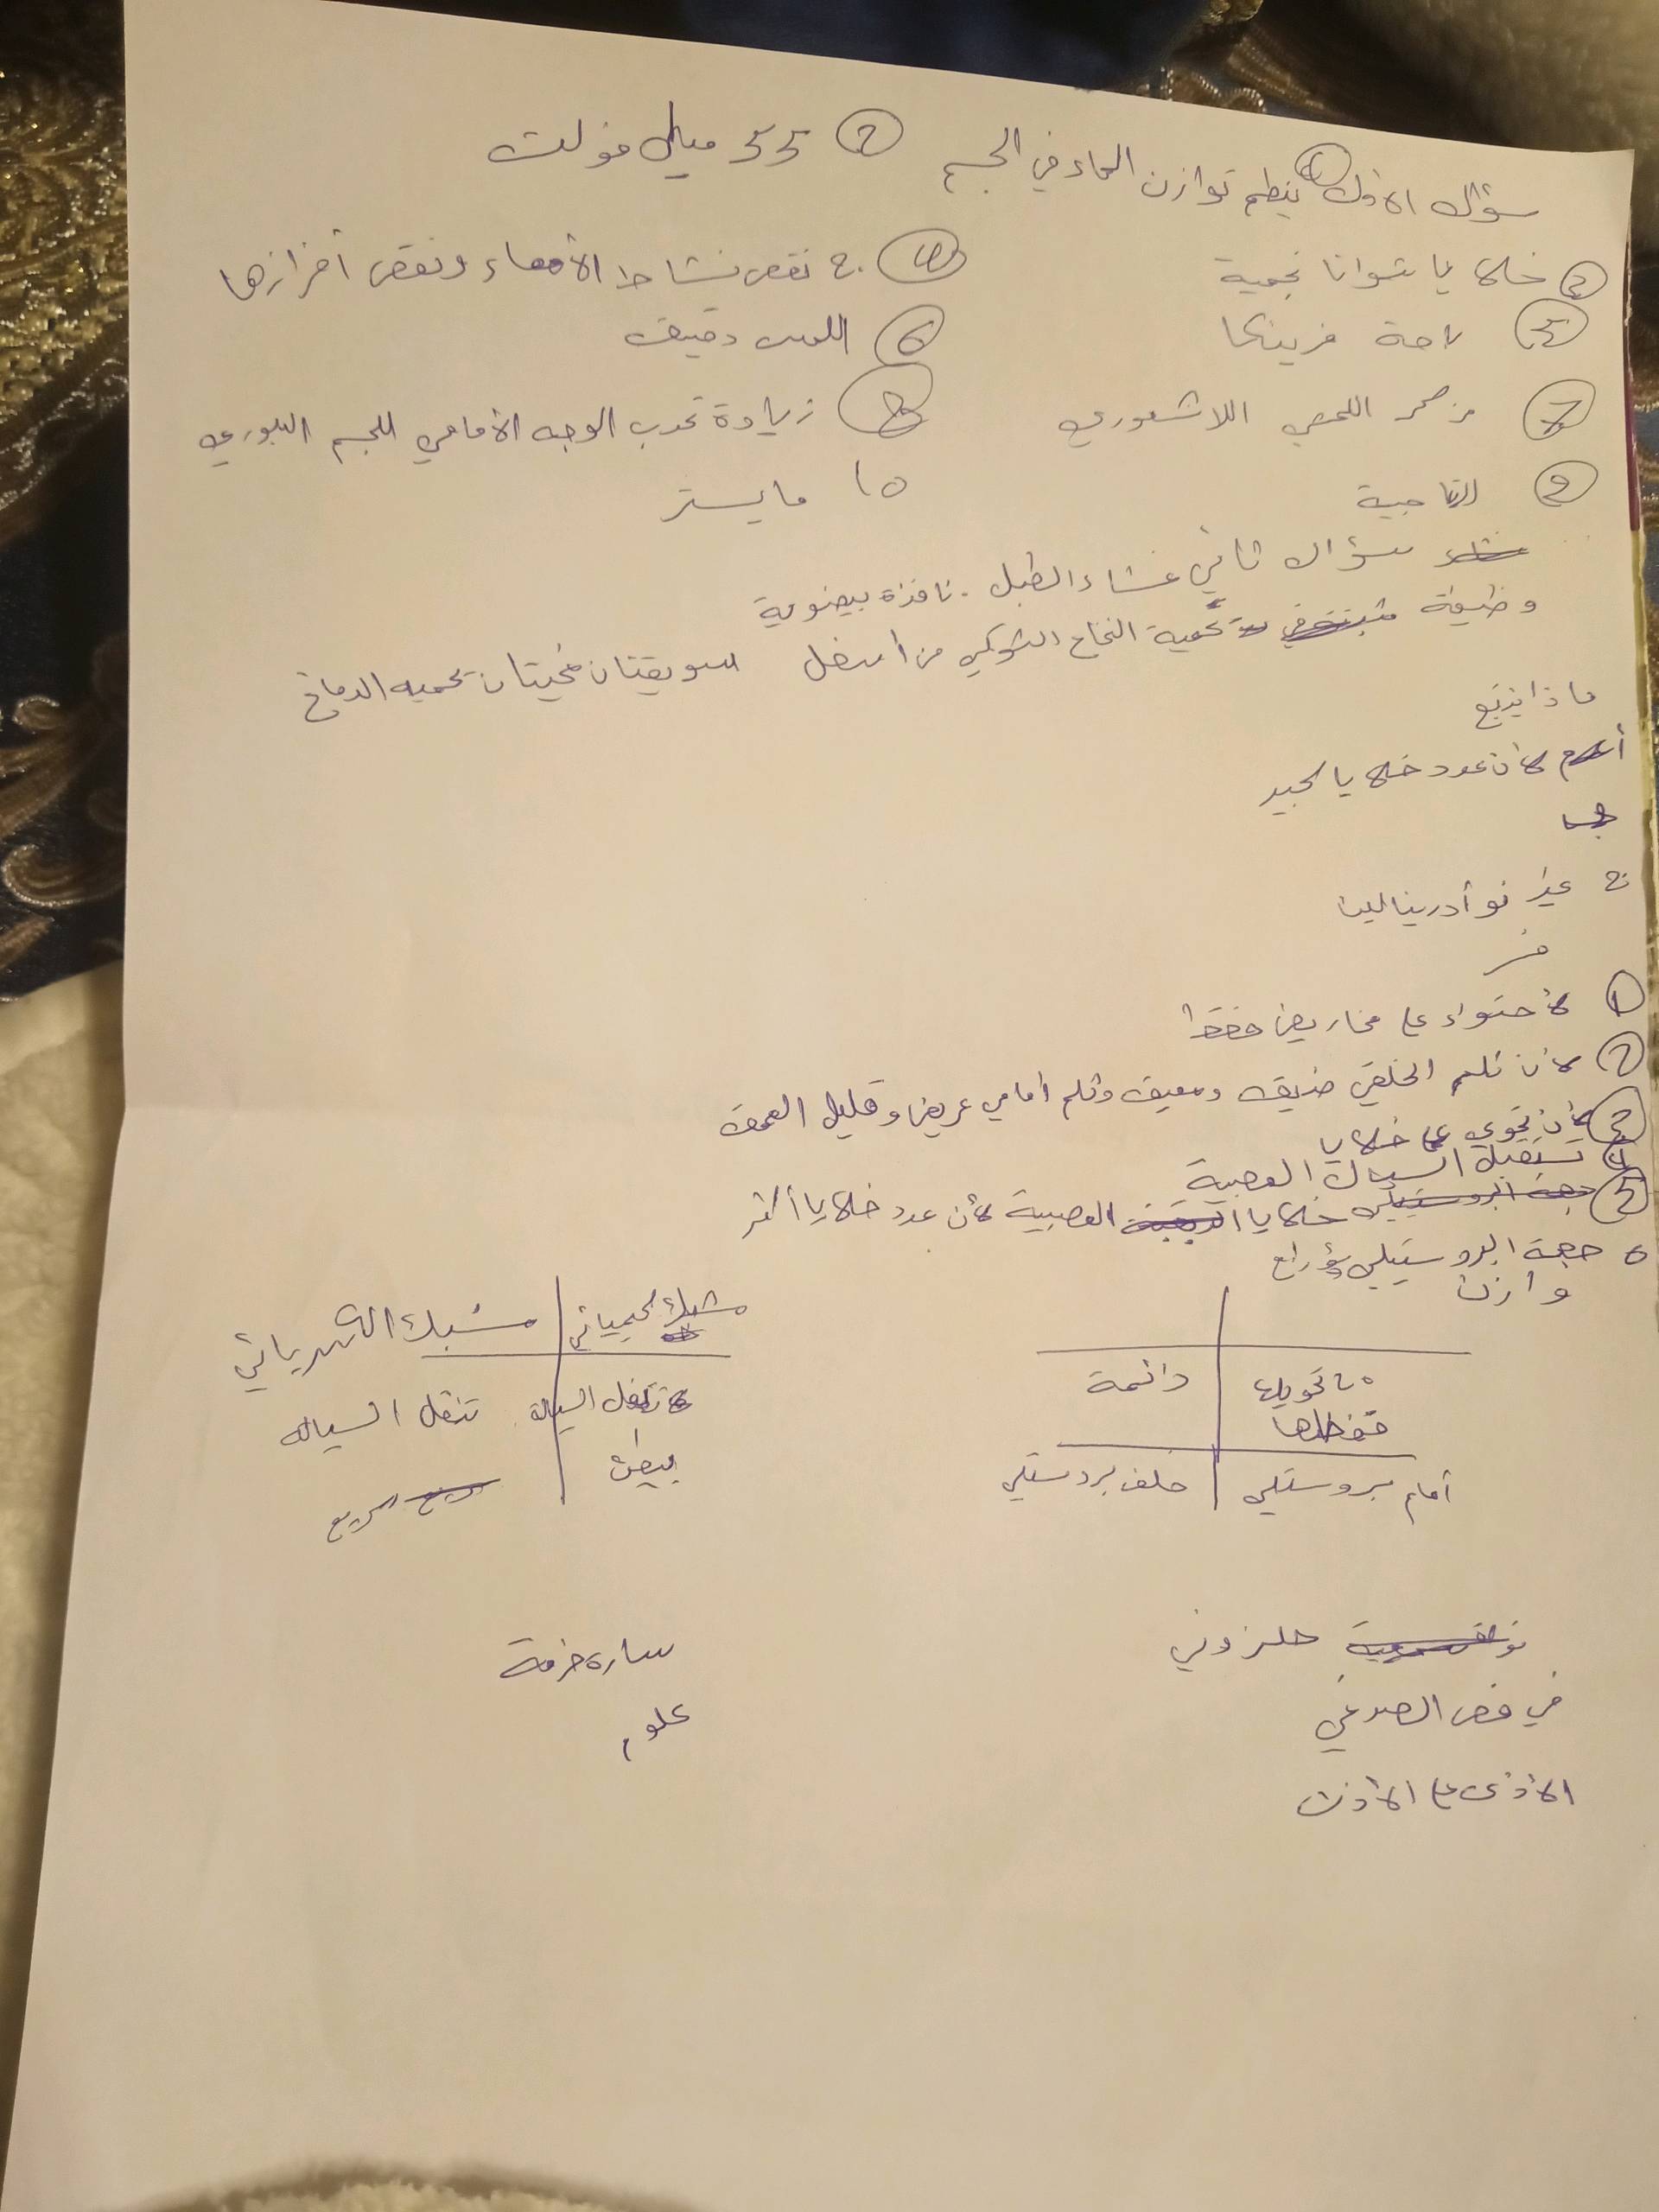 سؤال الاول ① ينظم توازن الماء في الجسم ② 55 ميلي فولت
③ خلايا شوانا نجمية ④ ج. نقص نشاط الأمعاء ونقص أفرازها
⑤ لاحة فرينكا ⑥ اللمس دقيق
⑦ مركز اللمحي اللاشعوري ⑧ زيادة تحدب الوجه الأمامي للجسم البلوري
⑨ التاجية 10 مايستر
سؤال ثاني غشاء الطبل. نافذة بيضوية
وظيفة تحمية النخاع الشوكي من اسفل سويقتان مخيتان تحميه الدماغ
ماذا ينتج
أ لان عدد خلايا لجبير
ج عبر نوأدرينالين
فسر
① لاحتواء على مخاريط فقط
② لان ثلم الخلفي ضيق وعميق وثلم امامي عريض وقليل العمق
③ لأن تحوي على خلايا
④ تستقبل السيال العصبية
⑤ خلايا العصبية لأن عدد خلايا أكثر
5 جهة البروستيلي سؤ رابع
وازن
مشبك كيميائي مشبك الكهربائي
دائمة
تنقل السيالة تنقل السياله
بيطئ سريع
أمام بروستيلي خلف بروستيلي
حلزوني
في فص الصدغي
الأذى على الأذن
ساره خرمة
علوم